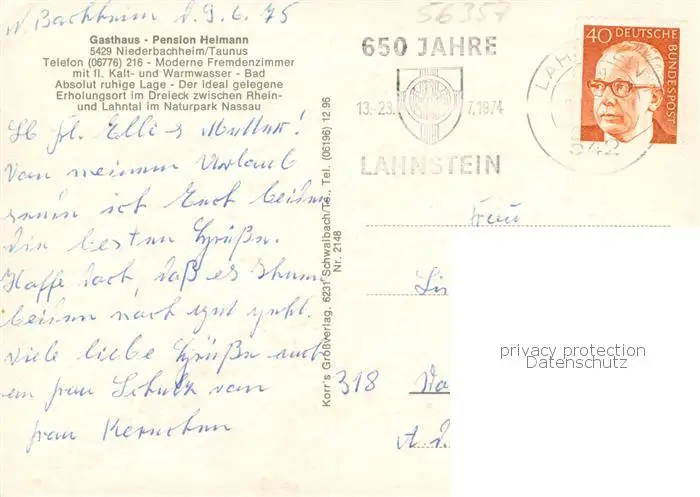 N. Bachheim d. 9.6.75
56357
Gasthaus - Pension Heimann
5429 Niederbachheim/Taunus
Telefon (06776) 216 - Moderne Fremdenzimmer
mit fl. Kalt- und Warmwasser - Bad
Absolut ruhige Lage - Der ideal gelegene
Erholungsort im Dreieck zwischen Rhein-
und Lahntal im Naturpark Nassau
Elli u Mutter!
Von meinem Urlaub
sende ich Euch beiden
die besten Grüße.
Hoffe doch, daß es Ihnen
beiden noch gut geht.
Viele liebe Grüße auch
an Frau Schulz von
Frau
Korr's Großverlag, 6231 Schwalbach/Ts., Tel. (06196) 12 96
Nr. 2148
650 JAHRE
13.-23. 7.1974
LAHNSTEIN
542
40 DEUTSCHE
BUNDESPOST
Frau
318
privacy protection
Datenschutz